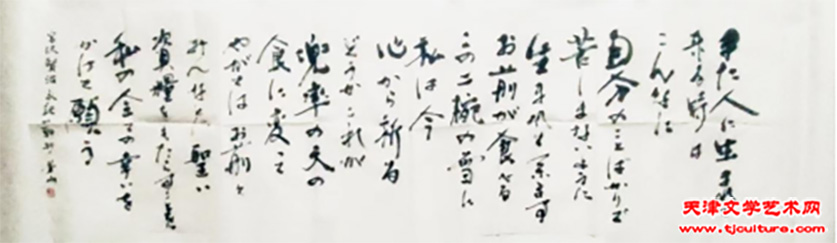 また人に生まれ
来る時は
こんなに
自分のことばかりで
苦しまないやうに
生まれて来ます
お前が食べる
この二椀の雪に
私は今
心から祈る
どうかこれが
兜率の天の
食に変って
やがてはお前と
みんなに聖い
資糧をもたらすことを
私の全ての幸いを
かけて願う
宮沢賢治 永訣の朝
天津文学艺术网
www.tjculture.com